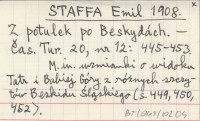 STAFFA Emil 1908.
Z potulek po Beskydách. —
Čas. Tur. 20, nr 12: 445-453.
M.in. wzmianki o widoku
Tatr i Babiej Góry z różnych szczy-
tów Beskidu Śląskiego (s. 449, 450,
452).